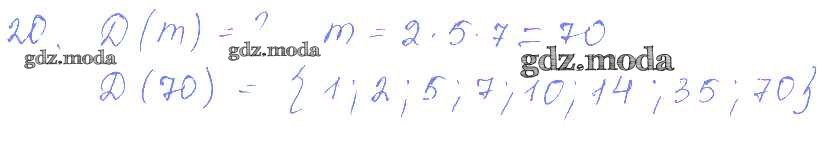 20. D(m) = ? m = 2·5·7 = 70
gdz.moda gdz.moda gdz.moda
D(70) = {1; 2; 5; 7; 10; 14; 35; 70}